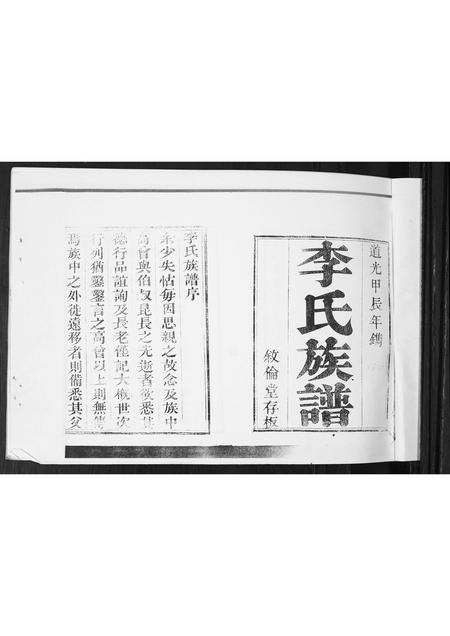 道光甲辰年鐫
李氏族譜
敘倫堂存板
李氏族譜序
余少失怙每因思親之故念及族中
高曾與伯叔昆長之先逝者欲悉其
德行品誼詢及長老僅記大概世次
行列猶鑿鑿言之高曾以上則無傳
焉族中之外徙遠移者則備悉其父